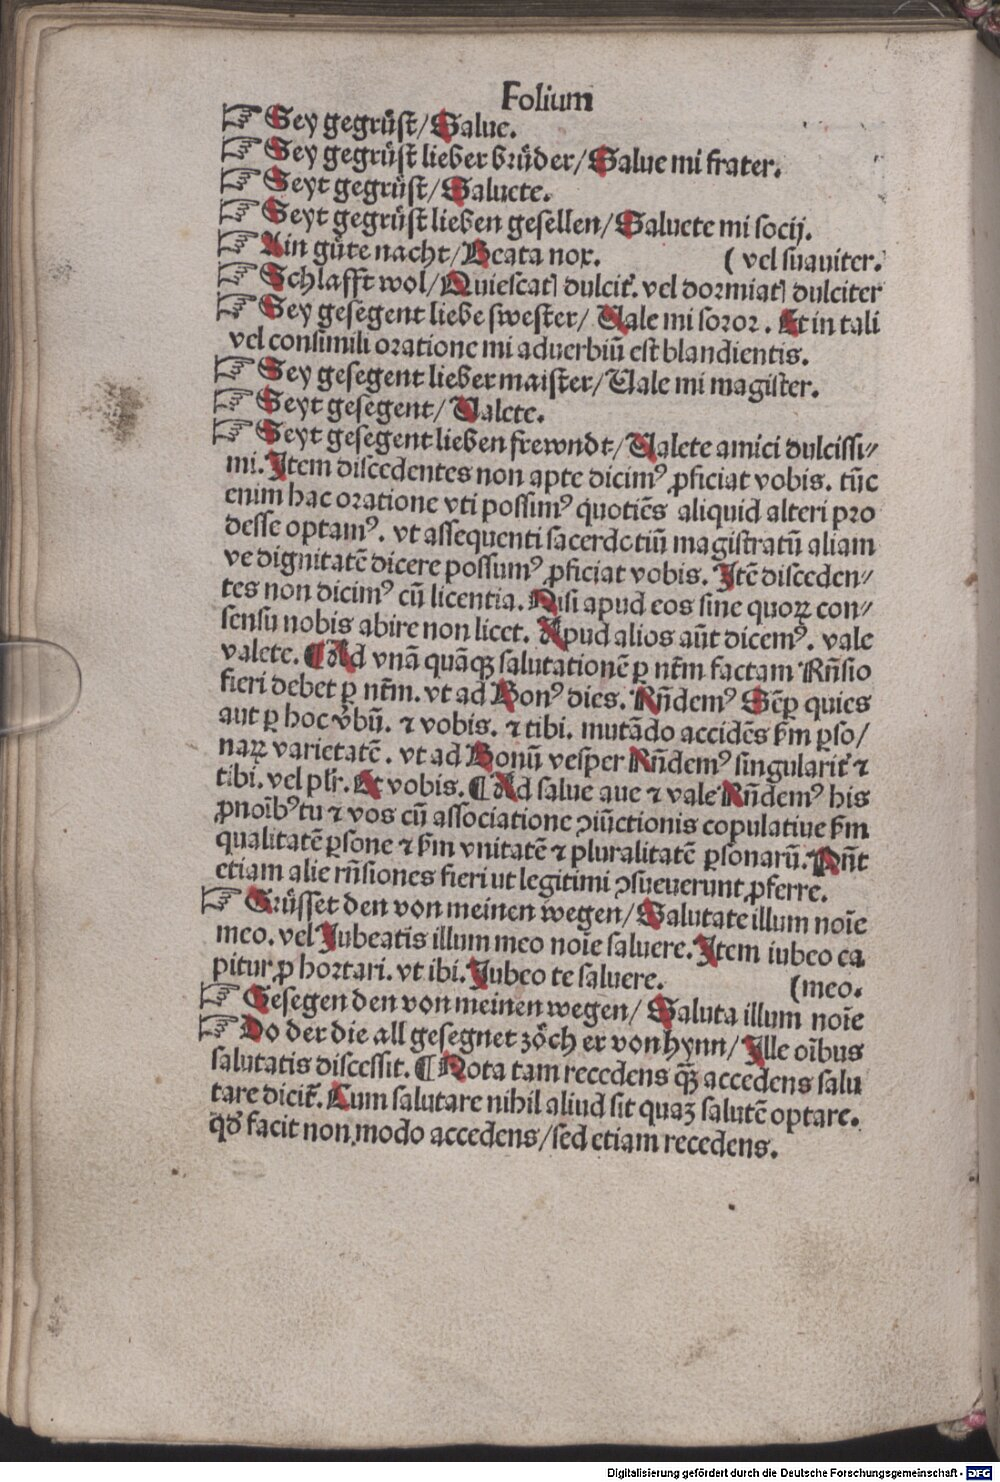 Folium
☞ Sey gegrüst/Salue.
☞ Sey gegrüst lieber brüder/Salue mi frater.
☞ Seyt gegrüst/Saluete.
☞ Seyt gegrüst lieben gesellen/Saluete mi socij.
☞ Ain güte nacht/Beata nox. (vel suauiter.
☞ Schlafft wol/Quiescatꝭ dulcit᷑. vel dormiatꝭ dulciter
☞ Sey gesegent liebe swester/ Uale mi soror. Et in tali
vel consimili oratione mi aduerbiū est blandientis.
☞ Sey gesegent lieber maister/Uale mi magister.
☞ Seyt gesegent/ Ualete.
☞ Seyt gesegent lieben frewndt/Ualete amici dulcissi⸗
mi. Item discedentes non apte dicimꝰ ꝓficiat vobis. tūc
enim hac oratione vti possimꝰ quotiēs aliquid alteri pro
desse optamꝰ. vt assequenti sacerdotiū magistratū aliam
ve dignitatē dicere possumꝰ ꝓficiat vobis. Itē disceden⸗
tes non dicimꝰ cū licentia. Nisi apud eos sine quoꝝ con⸗
sensu nobis abire non licet. Apud alios aūt dicemꝰ. vale
valete. ¶Ad vnā quāqꝫ salutationē ꝑ nr̄m factam Rn̄sio
fieri debet ꝑ nr̄m. vt ad Bonꝰ dies. Rn̄demꝰ Sēꝑ quies
aut ꝑ hoc v̄bū. ⁊ vobis. ⁊ tibi. mutādo accidēs ẜm ꝑso/
naꝝ varietatē. vt ad Bonū vesper Rn̄demꝰ singularit᷑ ⁊
tibi. vel plr̄. Et vobis. ¶Ad salue aue ⁊ vale Rn̄demꝰ his
ꝓnoībꝰ tu ⁊ vos cū associatione ↄiūctionis copulatiue ẜm
qualitatē ꝑsone ⁊ ẜm vnitatē ⁊ pluralitatē ꝑsonarū. Pn̄t
etiam alie rn̄siones fieri ut legitimi ↄsueuerunt ꝓferre.
☞ Grüsset den von meinen wegen/Salutate illum noīe
meo. vel Iubeatis illum meo noīe saluere. Item iubeo ca
pitur ꝓ hortari. vt ibi. Iubeo te saluere. (meo.
☞ Gesegen den von meinen wegen/ Saluta illum noīe
☞ Do der die all gesegnet zöch er von hynn/Ille oībus
salutatis discessit. ¶Nota tam recedens qꝫ̄ accedens salu
tare dicit᷑. Cum salutare nihil aliud sit quaꝫ salutē optare.
qď facit non modo accedens/sed etiam recedens.
Digitalisierung gefördert durch die Deutsche Forschungsgemeinschaft - DFG